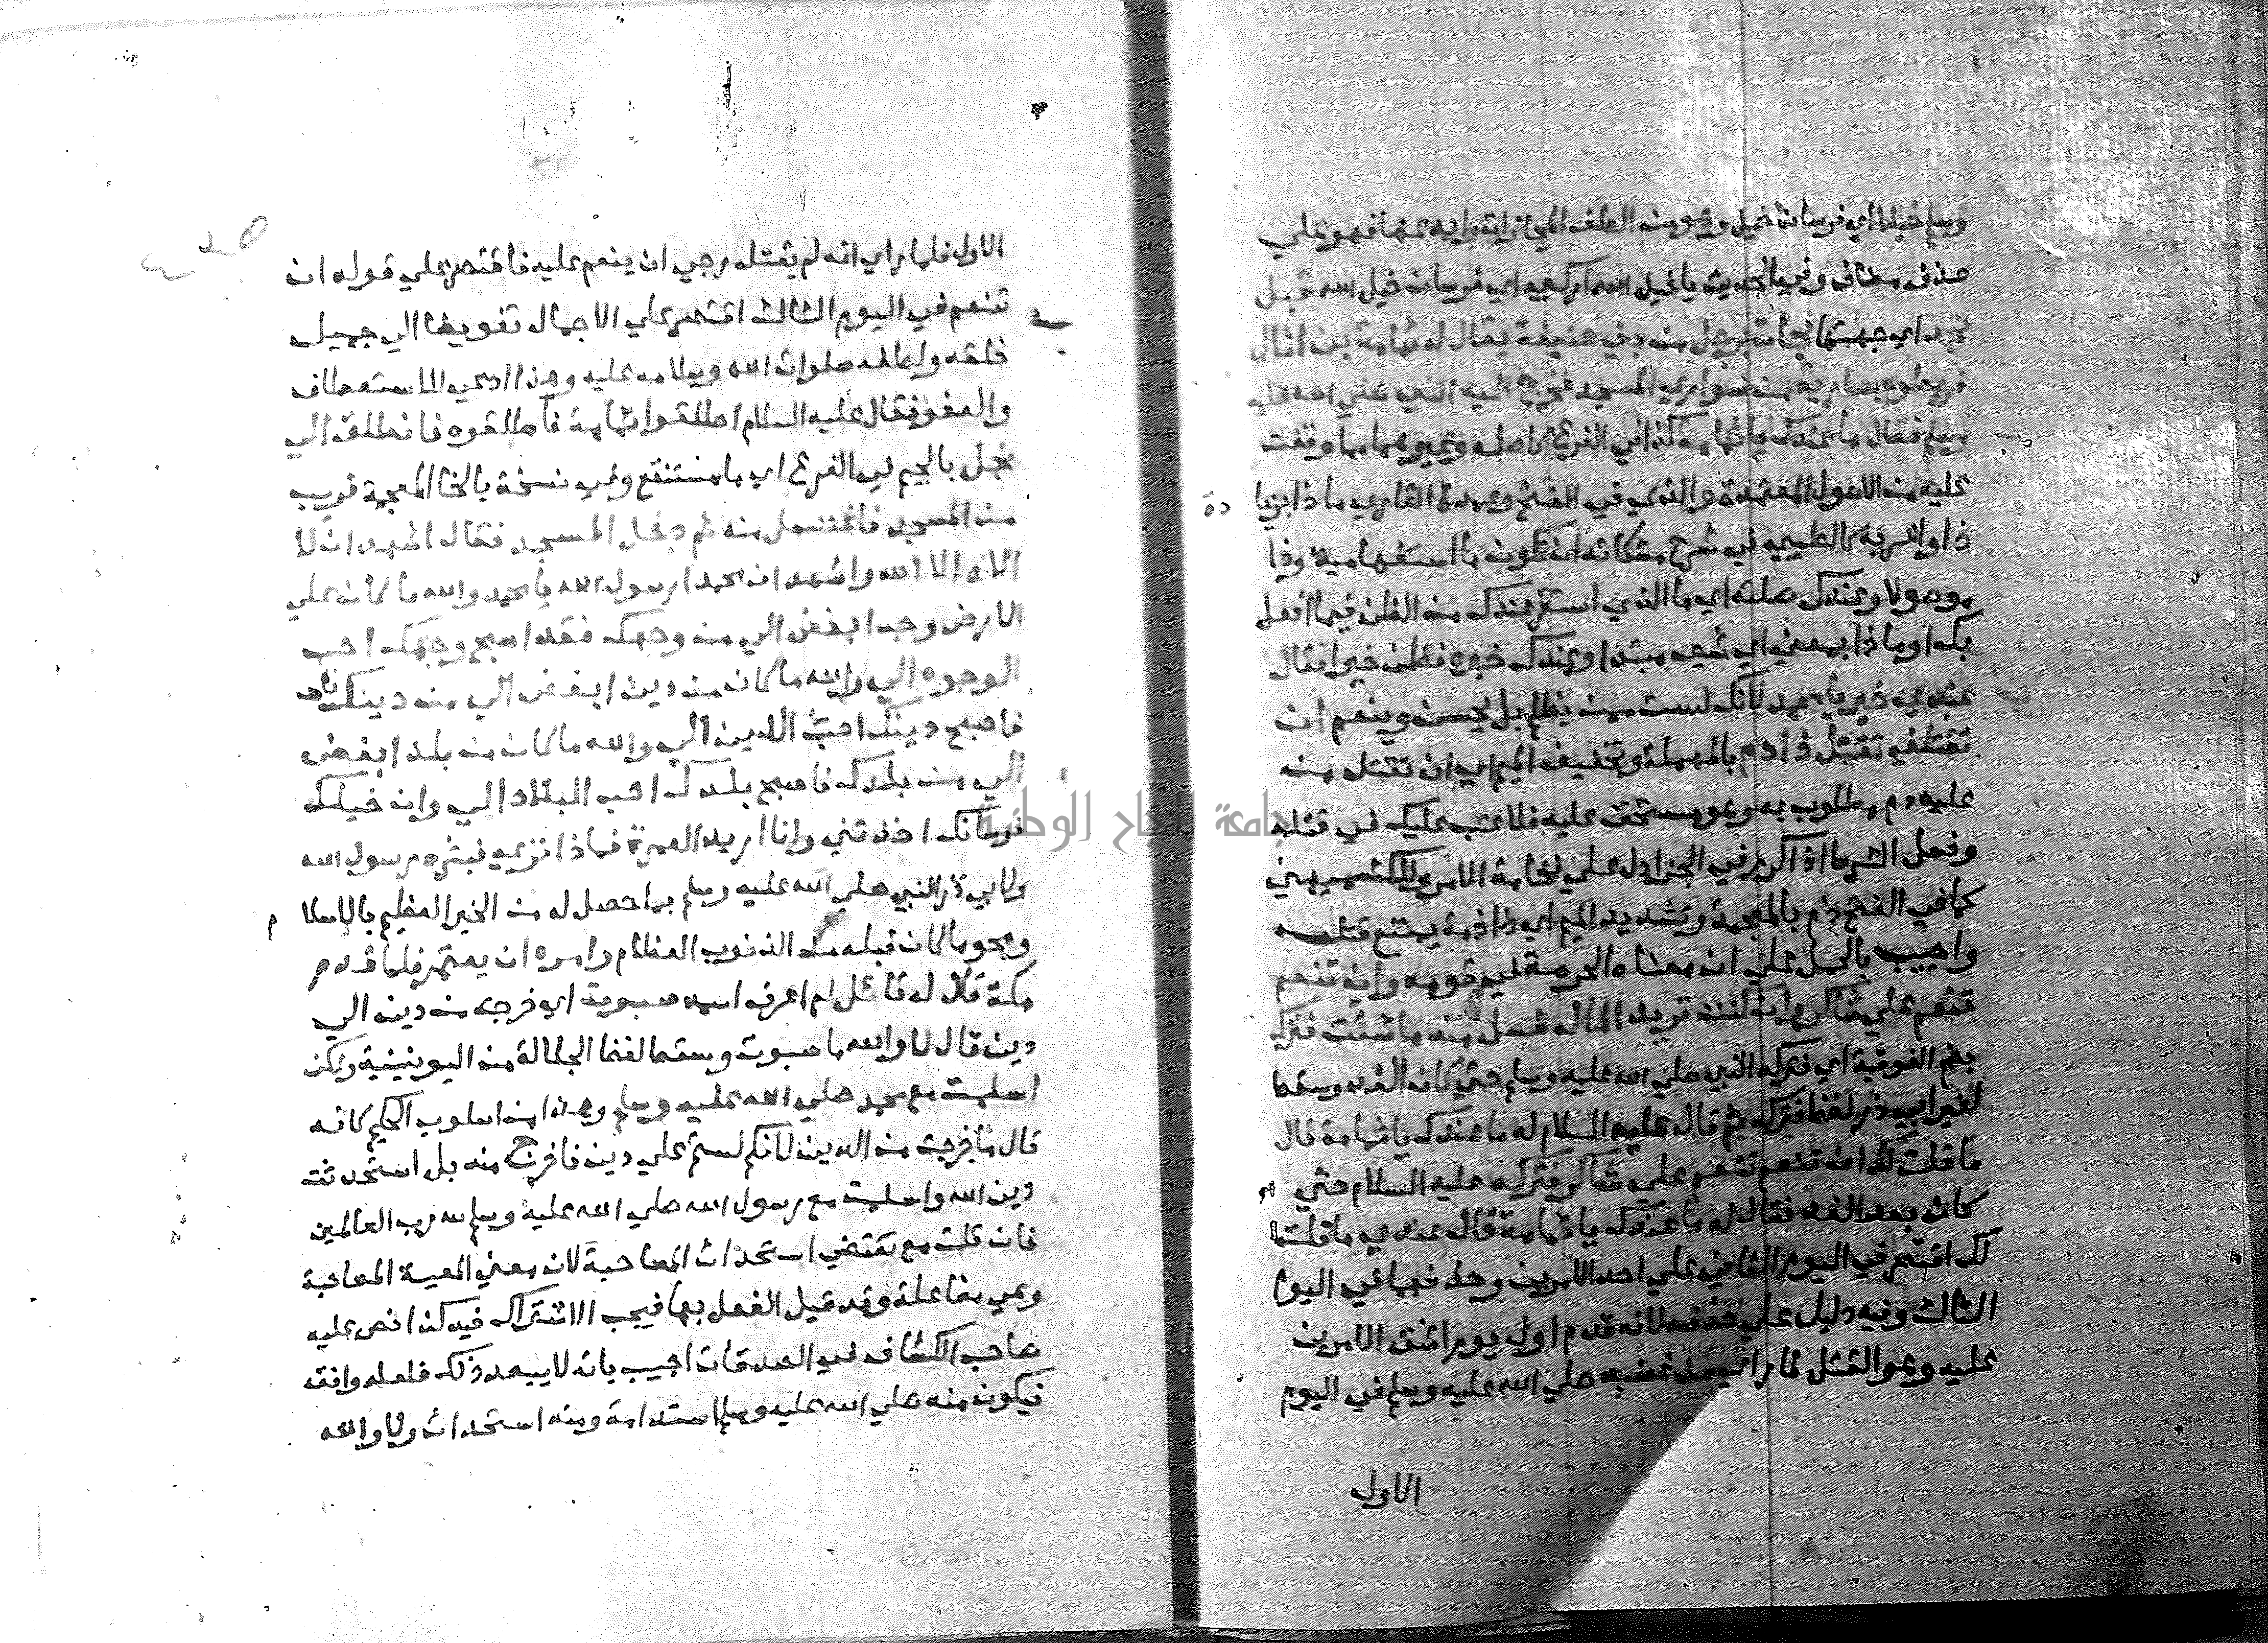 وسلم خيلا اي فرسان خيل وهو من الطف المجازات وابدعها فهو علي
حذف مضاف وفي الحديث يا خيل الله اركبي اي فرسان خيل الله قبل
نجد اي جهتها فجات برجل من بني حنيفة يقال له ثمامة بن اثال
فربطوه بسارية من سواري المسجد فخرج اليه النبي صلي الله عليه
وسلم فقال ما عندك يا ثمامة كذا في الفرع كاصله وغيرهما مما وقفت
عليه من الاصول المعتمدة والذي في الفتح وعمدة القاري ماذا بزيا دة
ذا واعربه كالطيبي في شرح مشكاته ان تكون ما استفهامية وذا
موصولا وعندك صلته اي ما الذي استقر عندك من الظن فيما افعل
بك او ماذا بمعني اي شيء مبتدا وعندك خبره فظن خيرا فقال
عندي خير يا محمد لانك لست ممن يظلم بل يحسن وينعم ان
تقتلني تقتل ذا دم بالمهملة وتخفيف الميم اي ان تقتل من
عليه دم مطلوب به وهو مستحق عليه فلا عتب عليك في قتله
وفعل الشرط اذا كرر في الجزا دل علي فخامة الامر وللكشميهني
كما في الفتح ذم بالمعجمة وتشديد الميم اي ذا ذمة يمتنع قتله
واجيب بالحمل علي ان معناه الحرمة في قومه وان تنعم
تنعم علي شاكر وان كنت تريد المال فسل منه ما شئت فترك
بضم الفوقية اي فتركه النبي صلي الله عليه وسلم حتي كان الغد وسقط
لغير ابي ذر لفظ فترك ثم قال عليه السلام له ما عندك يا ثمامة قال
ما قلت لك ان تنعم تنعم علي شاكر فتركه عليه السلام حتي
كان بعد الغد فقال له ما عندك يا ثمامة قال عندي ما قلت
لك اقتصر في اليوم الثاني علي احد الامرين وحذفهما في اليوم
الثالث وفيه دليل علي حذفه لانه قدم اول يوم اشق الامرين
عليه وهو القتل لما راي من غضبه صلي الله عليه وسلم في اليوم
الاول
الاول فلما راي انه لم يقتله رجي ان ينعم عليه فاقتصر علي قوله ان
تنعم في اليوم الثالث اقتصر علي الاجمال تفويضا الي جميل
خلقه ولطفه صلوات الله وسلامه عليه وهذا ادعي للاستعطاف
والعفو فقال عليه السلام اطلقوا ثمامة فاطلقوه فانطلق الي
نجل بالجيم في الفرع اي ما مستنقع وفي نسخة بالخا المعجمة قريب
من المسجد فاغتسل منه ثم دخل المسجد فقال اشهد ان لا
الاه الا الله واشهد ان محمدا رسول الله يا محمد والله ما كان علي
الارض وجه ابغض الي من وجهك فقد اصبح وجهك احب
الوجوه الي والله ما كان من دين ابغض الي من دينك
فاصبح دينك احب الدين الي والله ما كان من بلد ابغض
الي من بلدك فاصبح بلدك احب البلاد الي وان خيلك
فرسانك اخذتني وانا اريد العمرة فماذا تري فبشره رسول الله
ولابي ذر النبي صلي الله عليه وسلم بما حصل له من الخير العظيم بالاسلا م
ومحو ما كان قبله من الذنوب العظام وامره ان يعتمر فلما قدم
مكة قال له قائل لم اعرف اسمه صبوت اي خرجت من دين الي
دين قال لا والله ما صبوت وسقط لفظ الجلالة من اليونينية ولكن
اسلمت مع محمد صلي الله عليه وسلم وهذا من اسلوب الحكيم كانه
قال ما خرجت من الدين لانكم لستم علي دين فاخرج منه بل استحدثت
دين الله واسلمت مع رسول الله صلي الله عليه وسلم لله رب العالمين
فان قلت مع تقتضي استحداث المصاحبة لان معني المعية المصاحبة
وهي مفاعلة وقد قيل الفعل بها فيجب الاشتراك فيه كذا نص عليه
صاحب الكشاف في الصدقات اجيب بانه لا يبعد ذلك فلعله وافقه
فيكون منه صلي الله عليه وسلم استدامة ومنه استحداث ولا والله
جامعة النجاح الوطنية